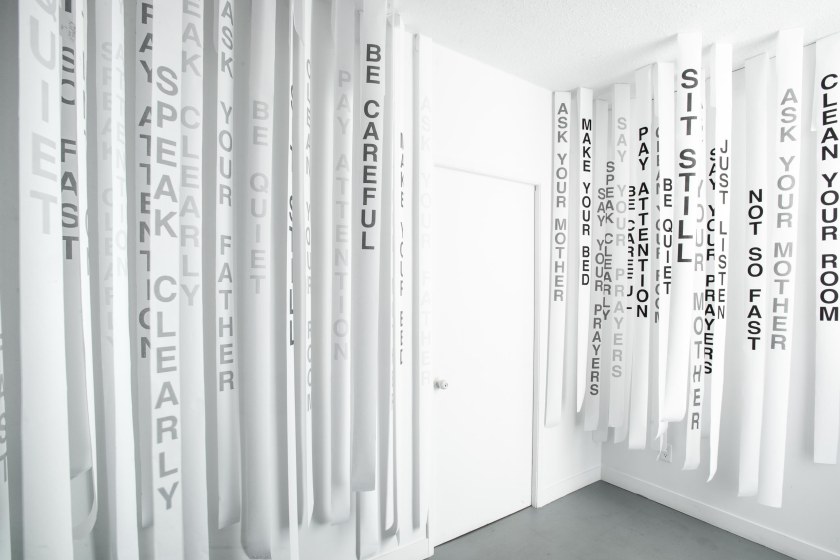 QUIET
SO FAST
SPEAK CLEARLY
PAY ATTENTION
SPEAK CLEARLY
SPEAK CLEARLY
ASK YOUR FATHER
BE QUIET
CLEAN YOUR ROOM
PAY ATTENTION
BE CAREFUL
MAKE YOUR BED
ASK YOUR FATHER
ASK YOUR MOTHER
MAKE YOUR BED
SAY YOUR PRAYERS
SPEAK CLEARLY
SAY YOUR PRAYERS
BE CAREFU
PAY ATTENTION
BE QUIET
SIT STILL
YOUR MOTHER
SAY YOUR PRAYERS
JUST LISTEN
NOT SO FAST
ASK YOUR MOTHER
CLEAN YOUR ROOM